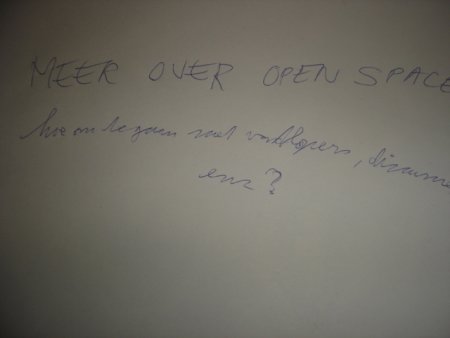 MEER OVER OPEN SPACE
hoe om te gaan met
enz?